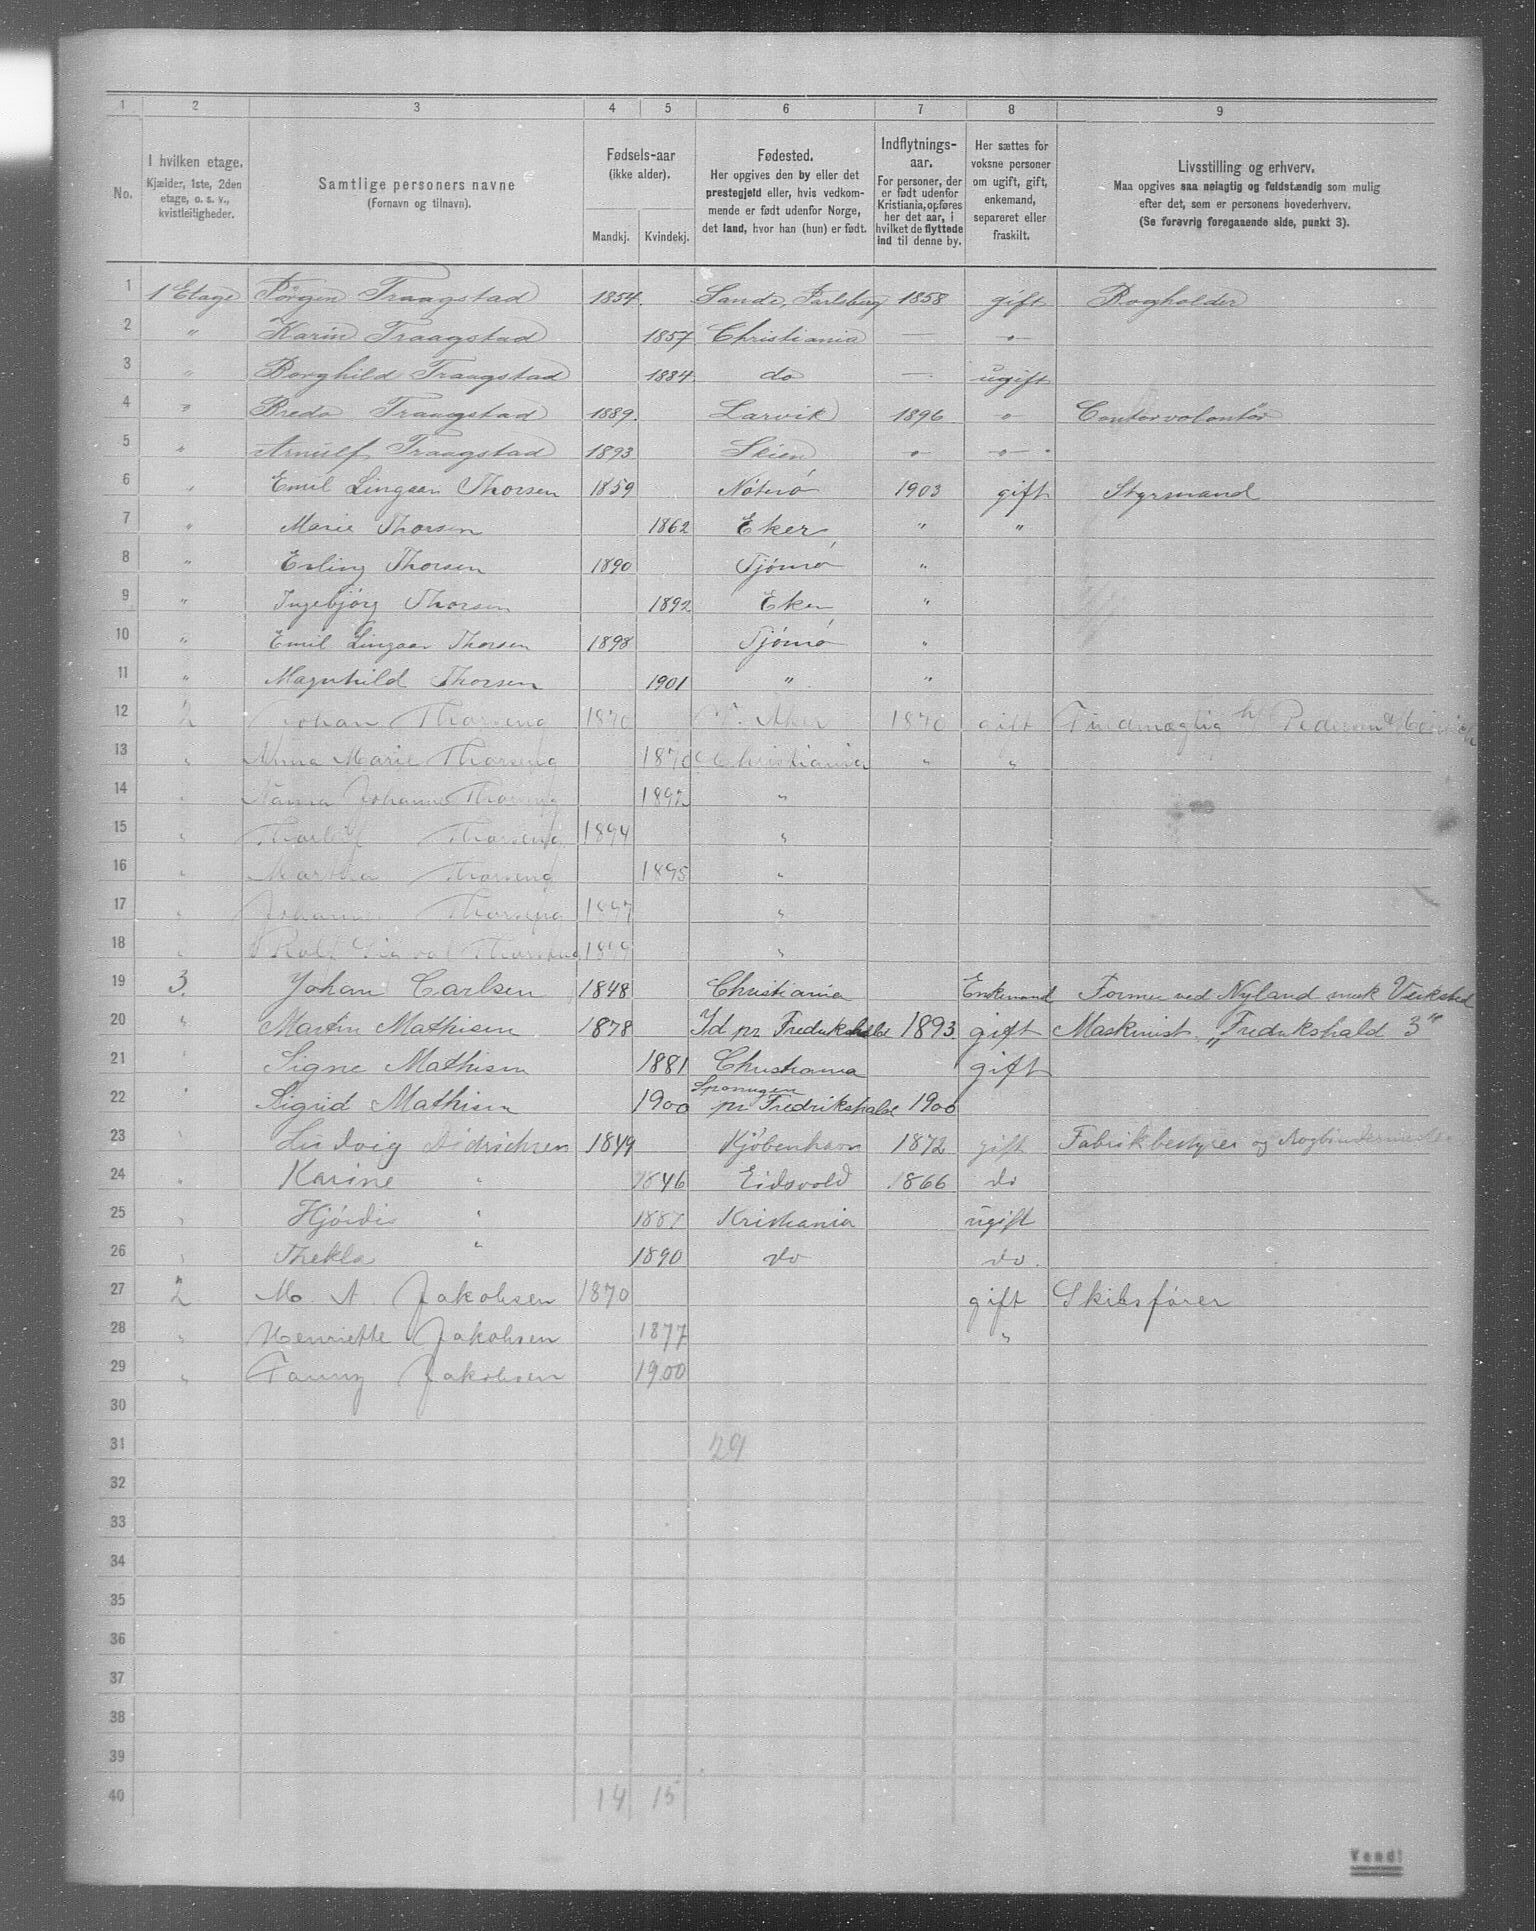 1 2 3 4 5 6 7 8 9
No. I hvilken etage. Kjælder, 1ste, 2den etage, o. s. v., kvistleiligheder. Samtlige personers navne (Fornavn og tilnavn). Fødsels-aar (ikke alder). Mandkj. Kvindekj. Fødested. Her opgives den by eller det prestegjeld eller, hvis vedkommende er født udenfor Norge, det land, hvor han (hun) er født. Indflytnings-aar. For personer, der er født udenfor Kristiania, opføres her det aar, i hvilket de flyttede ind til denne by. Her sættes for voksne personer om ugift, gift, enkemand, separeret eller fraskilt. Livsstilling og erhverv. Maa opgives saa nøiagtig og fuldstændig som mulig efter det, som er personens hovederhverv. (Se forøvrig foregaaende side, punkt 3).
1 1 Etage Jörgen Traagstad 1854 Sande, Jarlsberg 1858 gift Bogholder
2 " Karin Traagstad 1857 Christiania — -"-
3 " Borghild Traagstad 1884 do — ugift
4 " Bredo Traagstad 1889 Larvik 1896 -"- Contorvolontör
5 " Arnulf Traagstad 1893 Skien -"- -"-
6 " Emil Lingaas Thorsen 1859 Nøterø 1903 gift Styrmand
7 " Marie Thorsen 1862 Eker " "
8 " Erling Thorsen 1890 Tjømø "
9 " Ingebjørg Thorsen 1892 Eker "
10 " Emil Lingaas Thorsen 1898 Tjømø "
11 " Magnhild Thorsen 1901 " "
12 2 Johan Thorseng 1870 V. Aker 1870 gift Fuldmægtig h/ Pedersen
13 " Anna Marie Thorseng 1870 Christiania " "
14 " Nanna Johanne Thorseng 1892 "
15 " Thorleif Thorseng 1894 "
16 " Martha Thorseng 1895 "
17 " Johannes Thorseng 1897 "
18 " Rolf Sigval Thorseng 1899 "
19 3. Johan Carlsen 1848 Christiania Enkemand Former ved Nyland mek Værksted
20 " Martin Mathisen 1878 Id pr. Fredrikshald 1893 gift Maskinist „Fredrikshald 3"
21 " Signe Mathisen 1881 Christiania gift
22 " Sigrid Mathisen 1900 pr Fredrikshald 1900
23 " Ludvig Didrichsen 1849 Kjøbenhavn 1872 gift Fabrikbestyrer og Bogbindermester
24 " Karine " 1846 Eidsvold 1866 do
25 " Hjördis " 1887 Kristiania ugift
26 " Thekla " 1890 do do.
27 2 M. A Jakobsen 1870 gift Skibsfører
28 " Henriette Jakobsen 1877 "
29 " Fanny Jakobsen 1900
30
31 29
32
33
34
35
36
37
38
39
40 14 15
Vend!